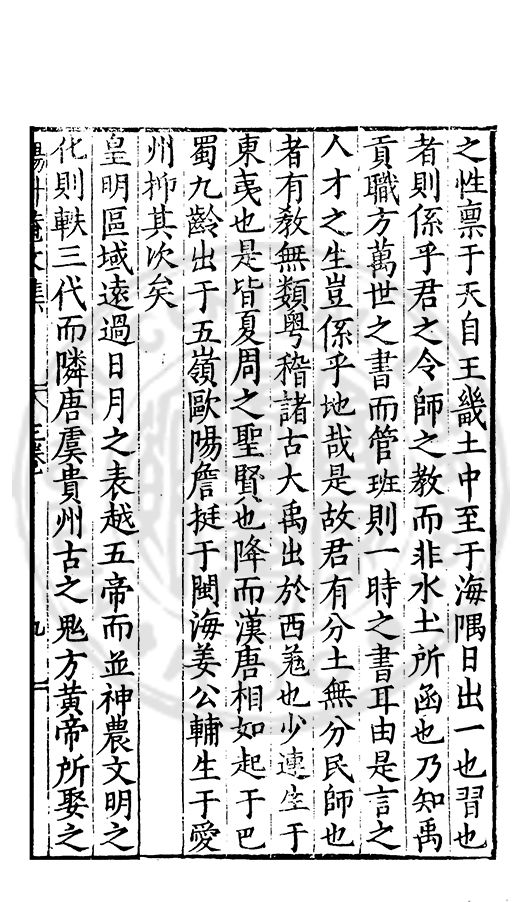 之性禀于天自王畿土中至于海隅日出一也習也
者則係乎君之令師之教而非水土所函也乃知禹
貢職方萬世之書而管班則一時之書耳由是言之
人才之生豈係乎地哉是故君有分土無分民師也
者有教無類粤稽諸古大禹出於西羗也少連生于
東夷也是皆夏周之聖賢也降而漢唐相如起于巴
蜀九齡出于五嶺歐陽詹挺于閩海姜公輔生于愛
州抑其次矣
皇明區域遠過日月之表越五帝而並神農文明之
化則軼三代而隣唐虞貴州古之鬼方黄帝所娶之
楊升菴文集
九